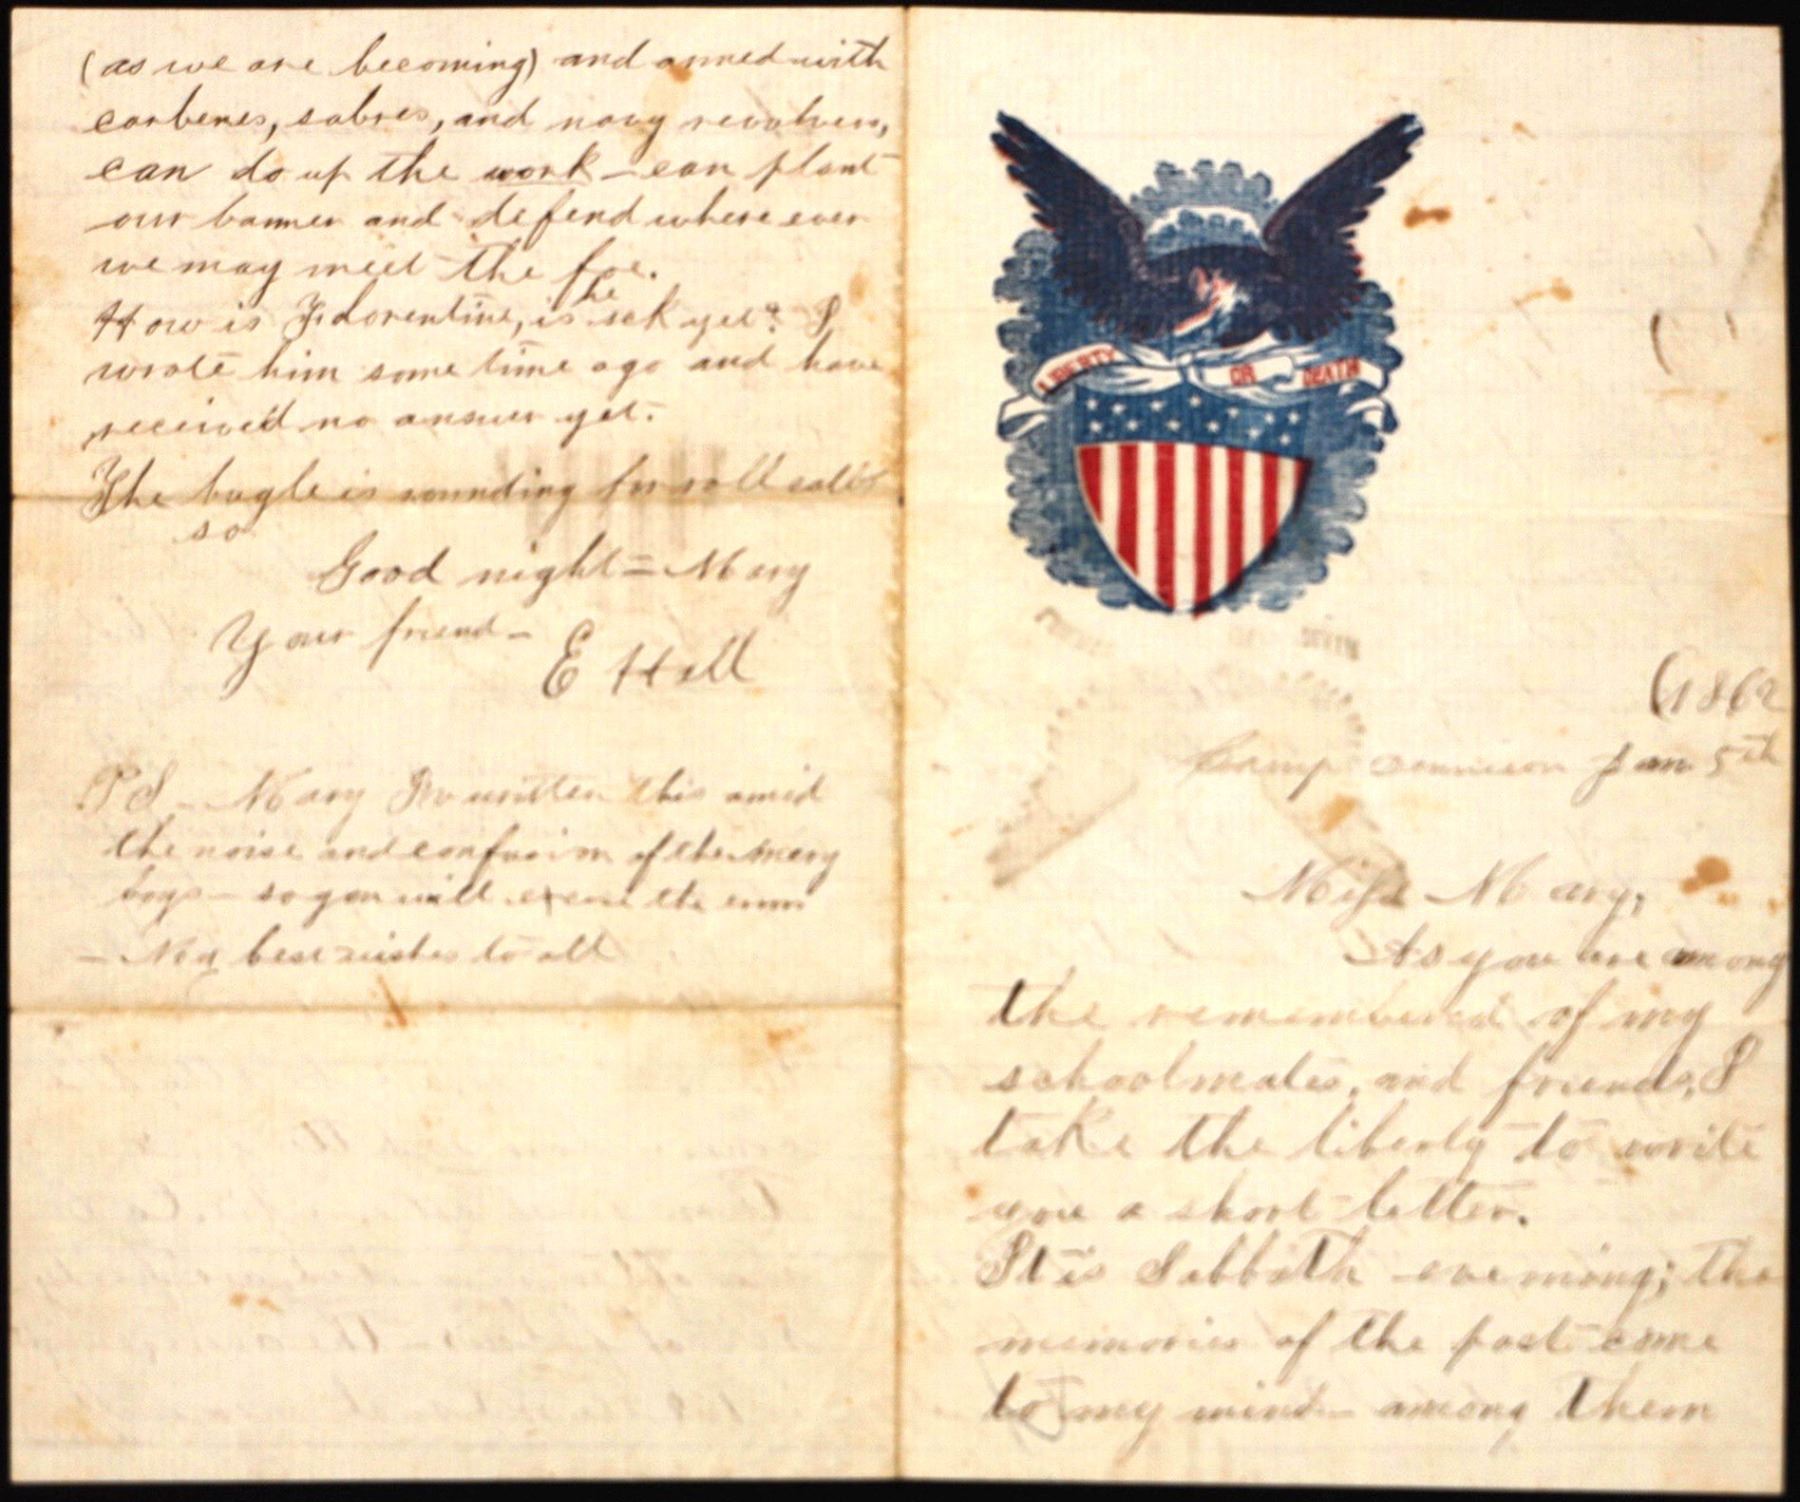 (1862
Camp Dennison Jan 5th
Miss Mary,
As you are among
the remembered of my
schoolmates, and friends, I
take the liberty to write
you a short letter.
It is Sabbath evening; the
memories of the past come
to my mind among them
LIBERTY OR DEATH
(as we are becoming) and armed with
carbenes, sabres, and navy revolvers,
can do up the work - can plant
our banner and defend where ever
we may meet the foe.
How is Florentine, is he sck yet? I
wrote him some time ago and have
received no answer yet.
The bugle is sounding for roll call
so
Good night = Mary
Your friend -
E Hall
PS - Mary I've written this amid
the noise and confusion of the merry
boys - so you will excuse the errors
- My best wishes to all